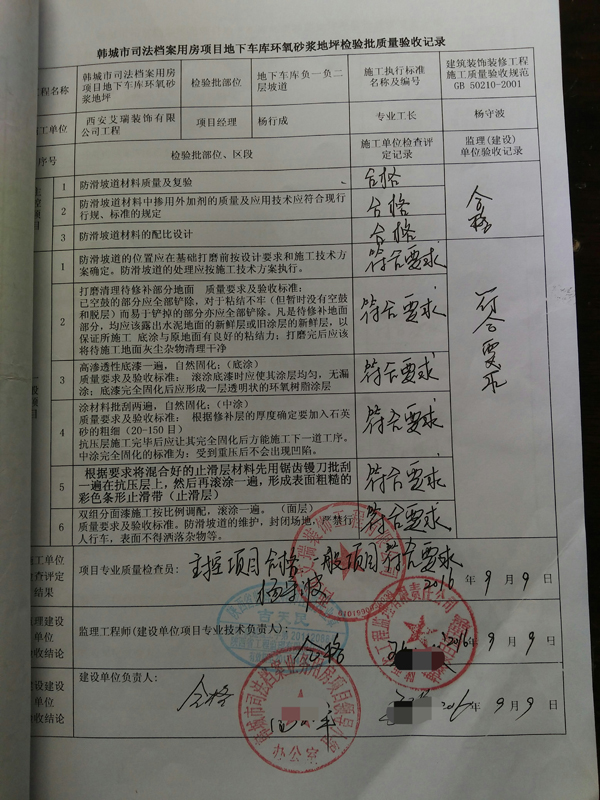 韩城市司法档案用房项目地下车库环氧砂浆地坪检验批质量验收记录
工程名称 韩城市司法档案用房项目地下车库环氧砂浆地坪 检验批部位 地下车库负一负二层坡道 施工执行标准名称及编号 建筑装饰装修工程施工质量验收规范 GB 50210-2001
施工单位 西安艾瑞装饰有限公司工程 项目经理 杨行成 专业工长 杨守波
序号 检验批部位、区段 施工单位检查评定记录 监理(建设)单位验收记录
1 防滑坡道材料质量及复验 合格
2 防滑坡道材料中掺用外加剂的质量及应用技术应符合现行行规、标准的规定 合格 合格
3 防滑坡道材料的配比设计 合格
1 防滑坡道的位置应在基础打磨前按设计要求和施工技术方案确定。防滑坡道的处理应按施工技术方案执行。 符合要求
2 打磨清理待修补部分地面 质量要求及验收标准:
已空鼓的部分应全部铲除,对于粘结不牢(但暂时没有空鼓
和脱层)而易于铲掉的部分亦应全部铲除。凡是待修补地面
部分,均应该露出水泥地面的新鲜层或旧涂层的新鲜层,以
保证所施工 底涂与原地面有良好的粘结力;打磨完后应该
将待施工地面灰尘杂物清理干净 符合要求 符合要求
3 高渗透性底漆一遍,自然固化;(底涂)
质量要求及验收标准: 滚涂底漆时应使其涂层均匀,无漏
涂;底漆完全固化后应形成一层透明状的环氧树脂涂层 符合要求
4 涂材料批刮两遍,自然固化;(中涂)
质量要求及验收标准: 根据修补层的厚度确定要加入石英
砂的粗细(20-150目)
抗压层施工完毕后应让其完全固化后方能施工下一道工序。
中涂完全固化的标准为:受到重压后不会出现凹陷。 符合要求
5 根据要求将混合好的止滑层材料先用锯齿镘刀批刮
一遍在抗压层上,然后再滚涂一遍,形成表面粗糙的
彩色条形止滑带(止滑层) 符合要求
6 双组分面漆施工按比例调配,滚涂一遍。(面层)
质量要求及验收标准。防滑坡道的维护,封闭场地,严禁行
人行车,表面不得洒落杂物等。 符合要求
施工单位检查评定结果 项目专业质量检查员: 主控项目合格 一般项目符合要求
杨守波 2016年9月9日
监理建设单位验收结论 监理工程师(建设单位项目专业技术负责人): 合格 2016年9月9日
建设单位验收结论 建设单位负责人: 合格 2016年9月9日